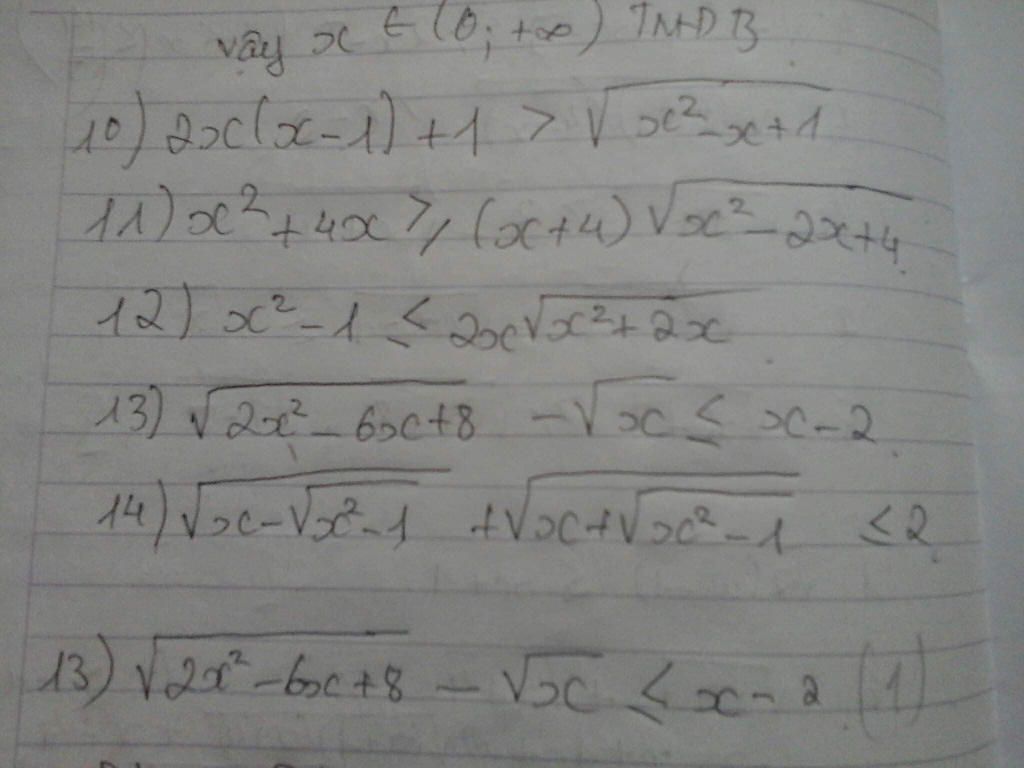 vậy x ∈ (0; +∞) TMĐB
10) 2x(x-1)+1 > √(x²-x+1)
11) x²+4x ≥ (x+4)√(x²-2x+4)
12) x²-1 ≤ 2x√(x²+2x)
13) √(2x²-6x+8) - √x ≤ x-2
14) √(x-√(x²-1)) + √(x+√(x²-1)) ≤ 2
13) √(2x²-6x+8) - √x ≤ x-2 (1)